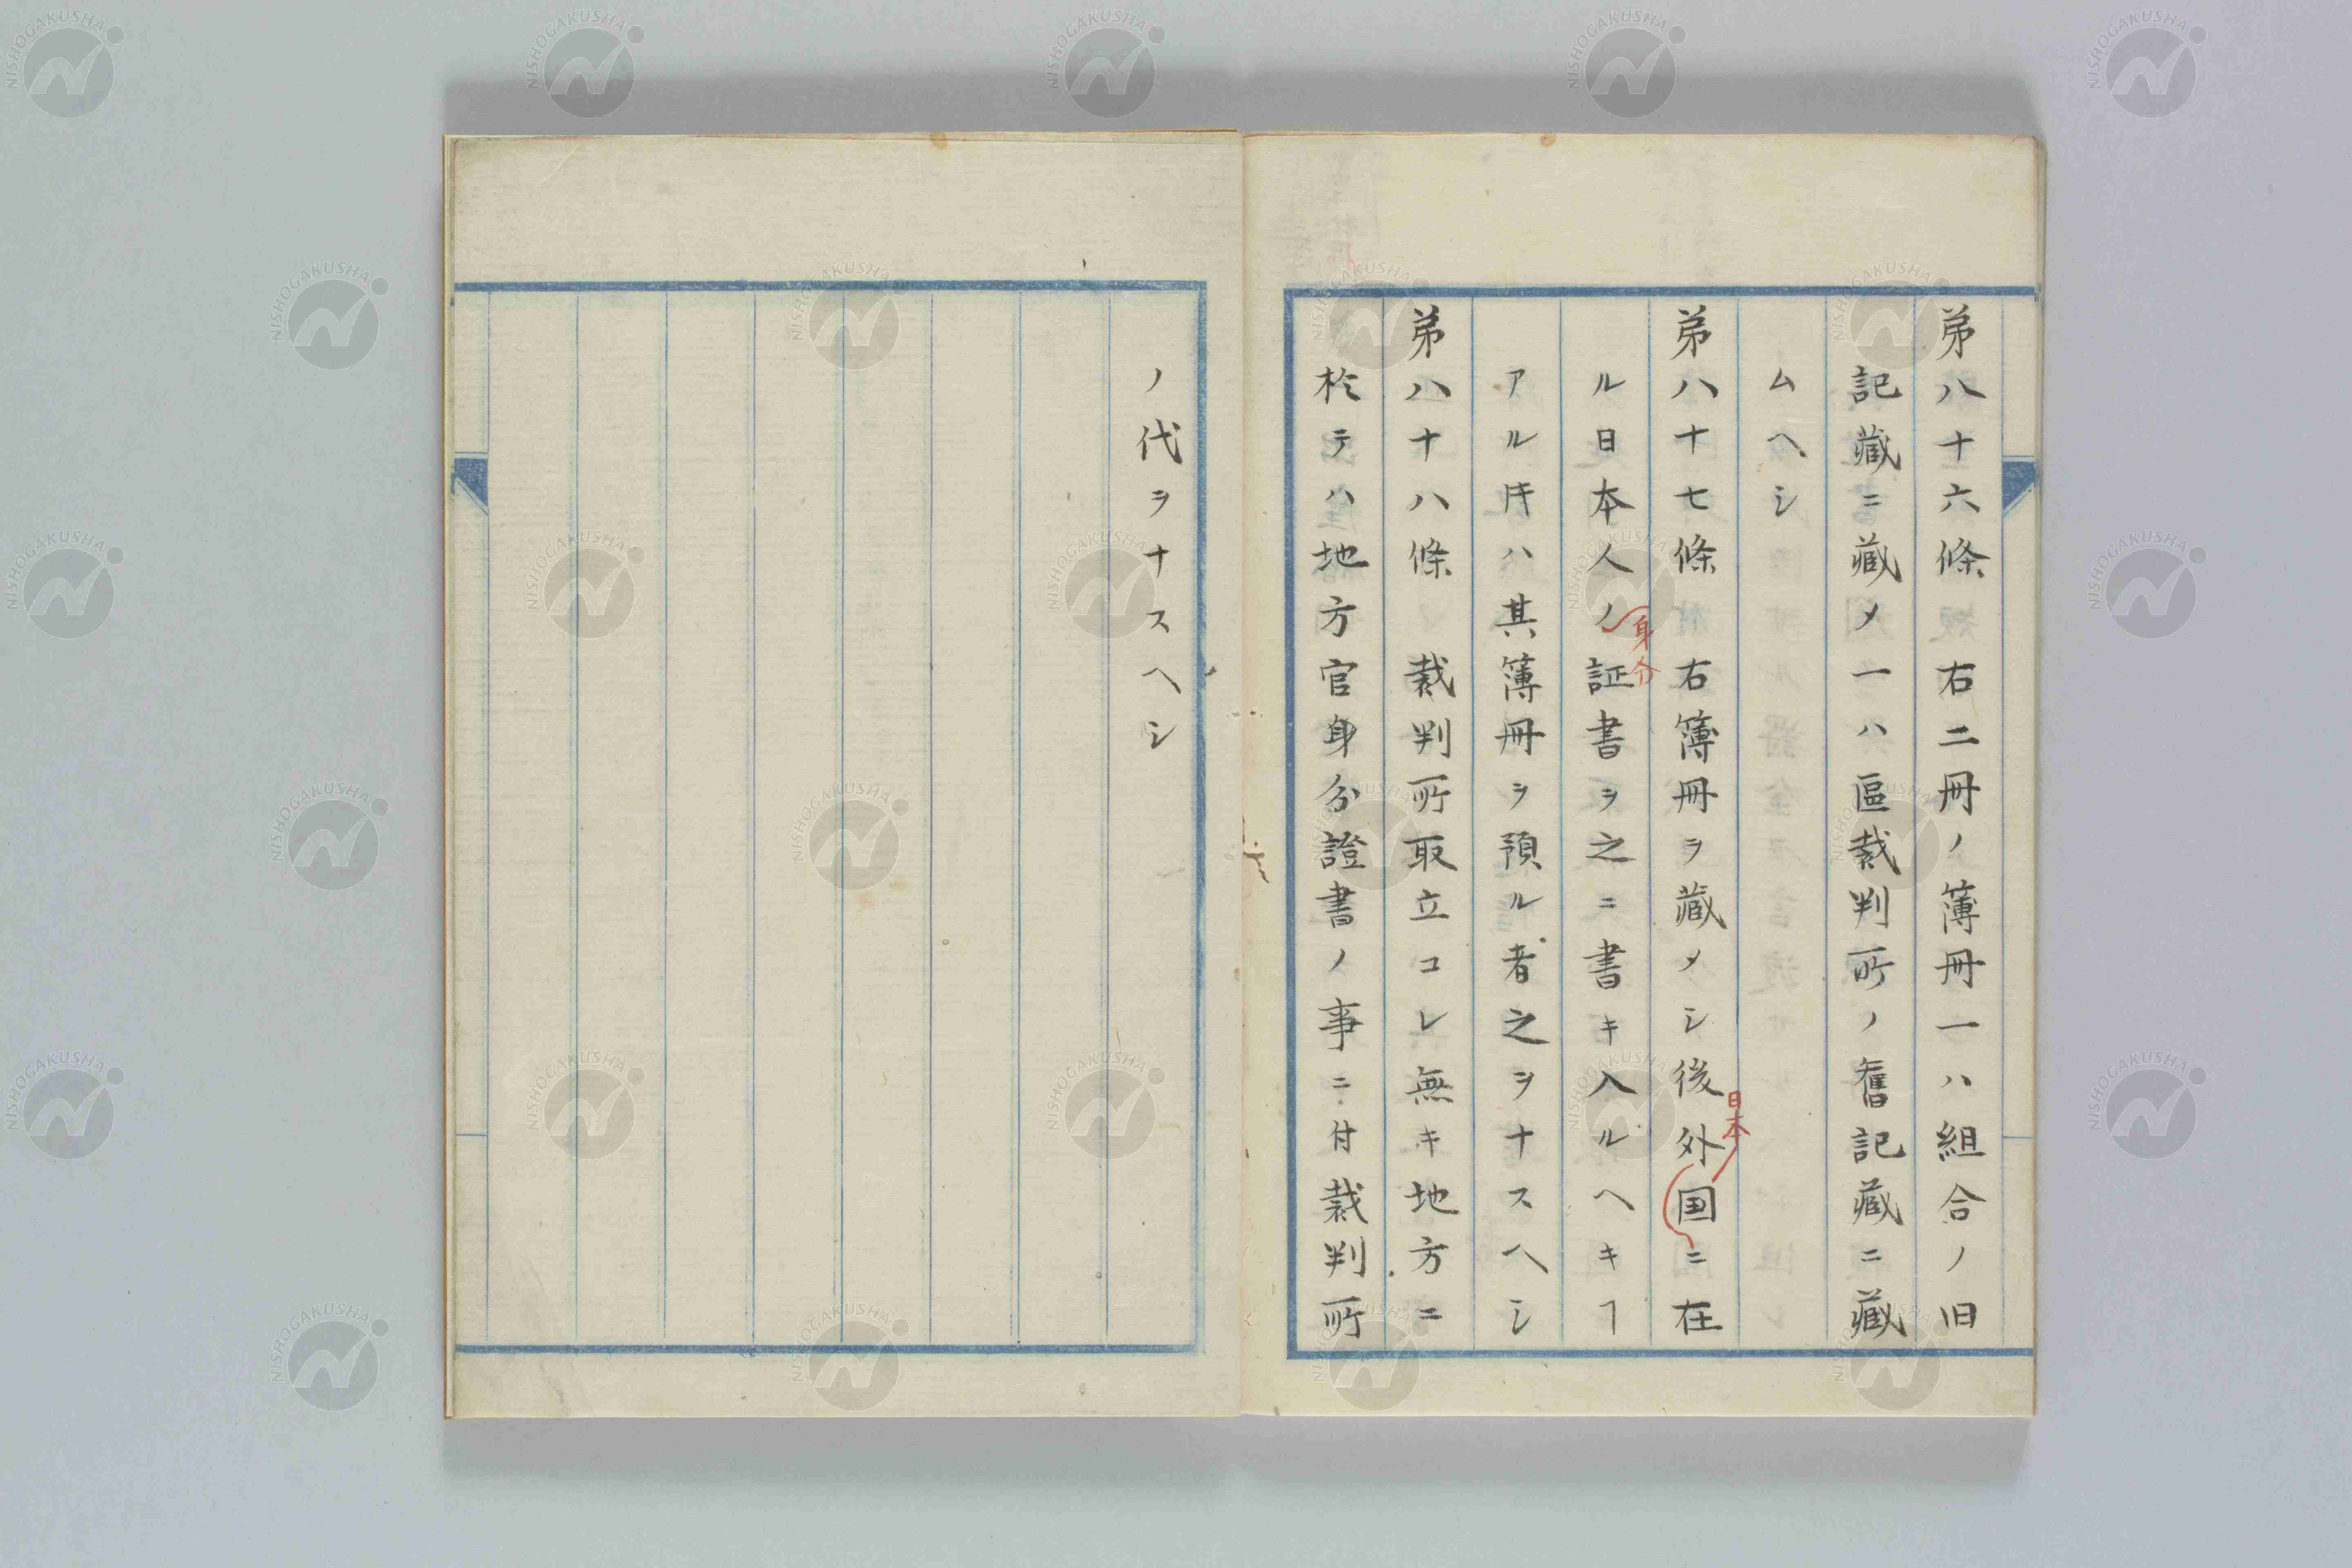 弟八十六條　右二冊ノ簿冊一ハ組合ノ旧
記藏ニ藏メ一ハ區裁判所ノ舊記藏ニ藏
ムヘシ
弟八十七條　右簿冊ヲ藏メシ後外国ニ在
日本
ル日本人ノ証書ヲ之ニ書キ入ルヘキヿ
身分
アル寸ハ其簿冊ヲ預ル者之ヲナスヘシ
弟八十八條　裁判所取立コレ無キ地方ニ
於テハ地方官身分證書ノ事ニ付裁判所
ノ代ヲナスヘシ
NISHOGAKUSHA